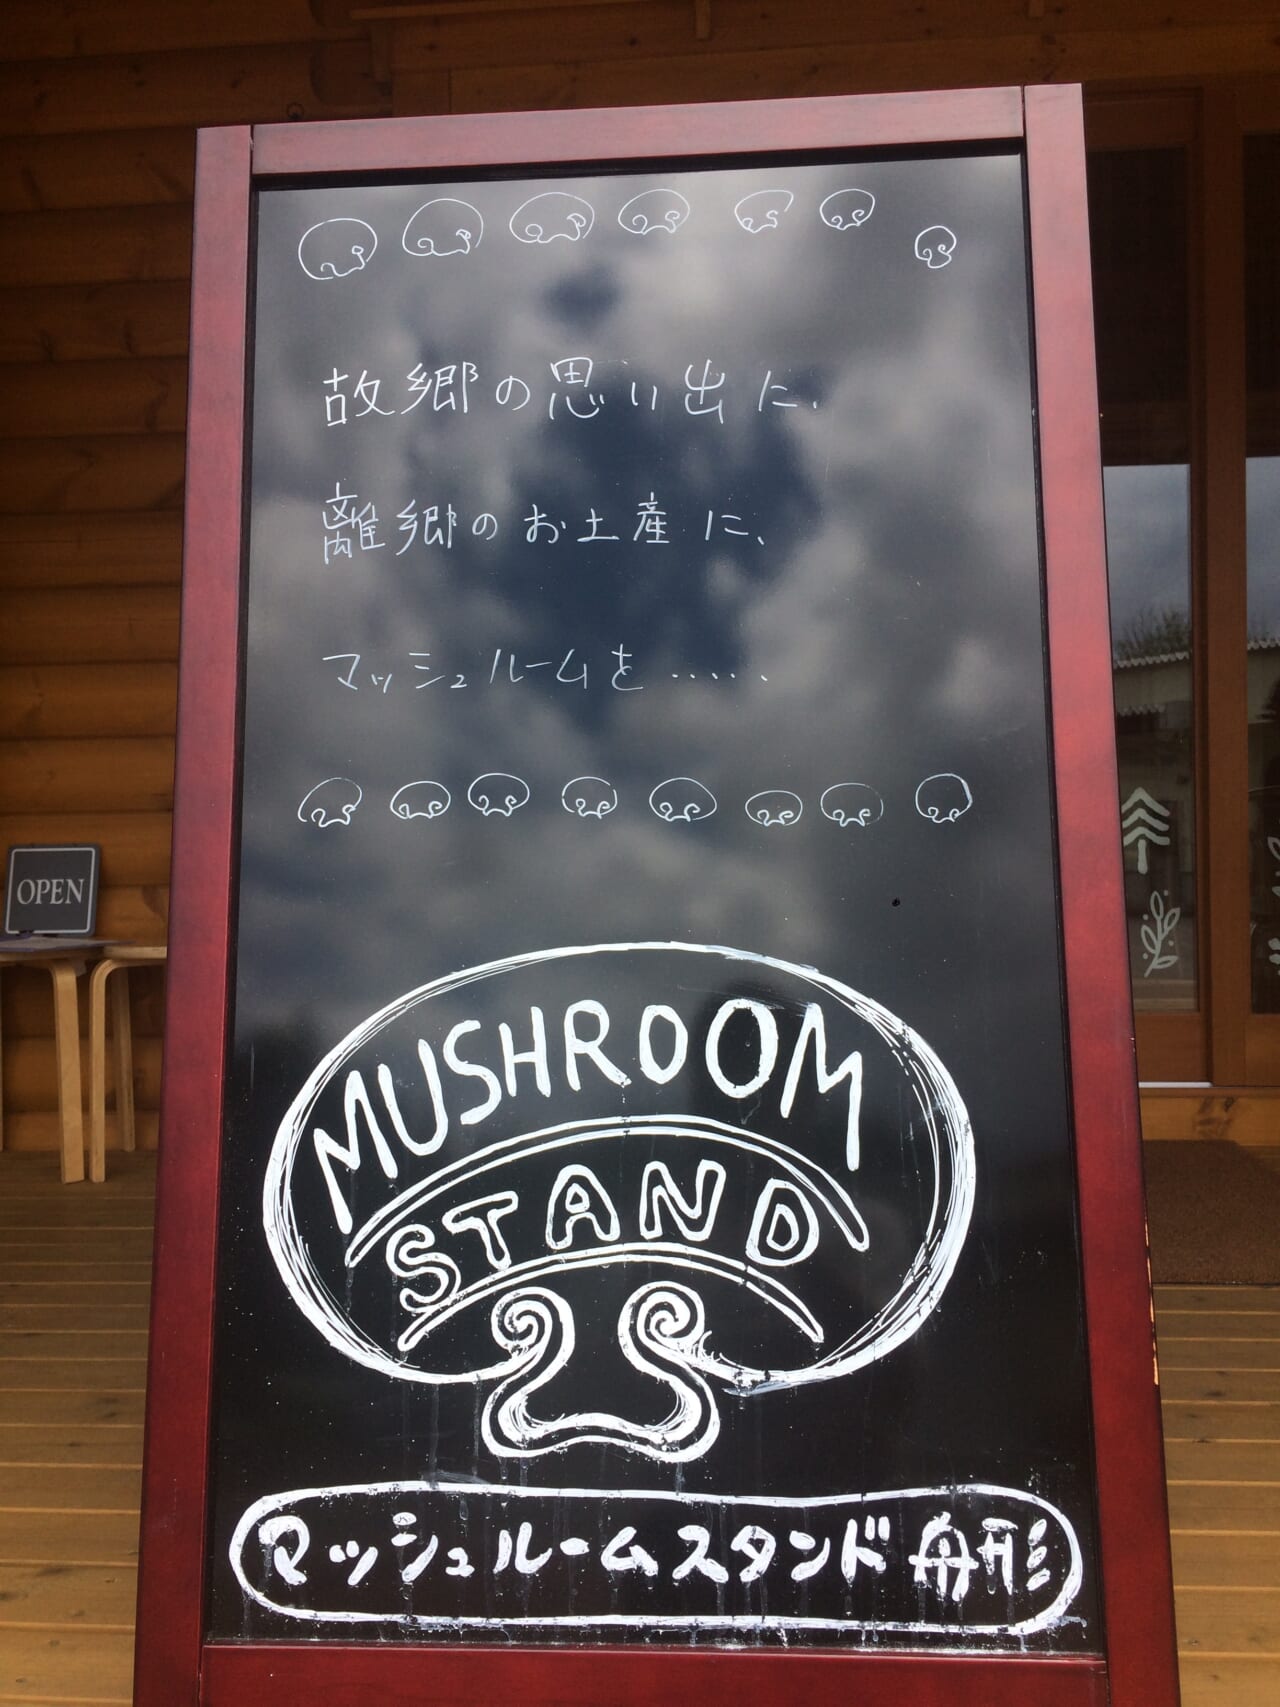 故郷の思い出に、
離郷のお土産に、
マッシュルームを……
OPEN
MUSHROOM
STAND
マッシュルームスタンド舟形